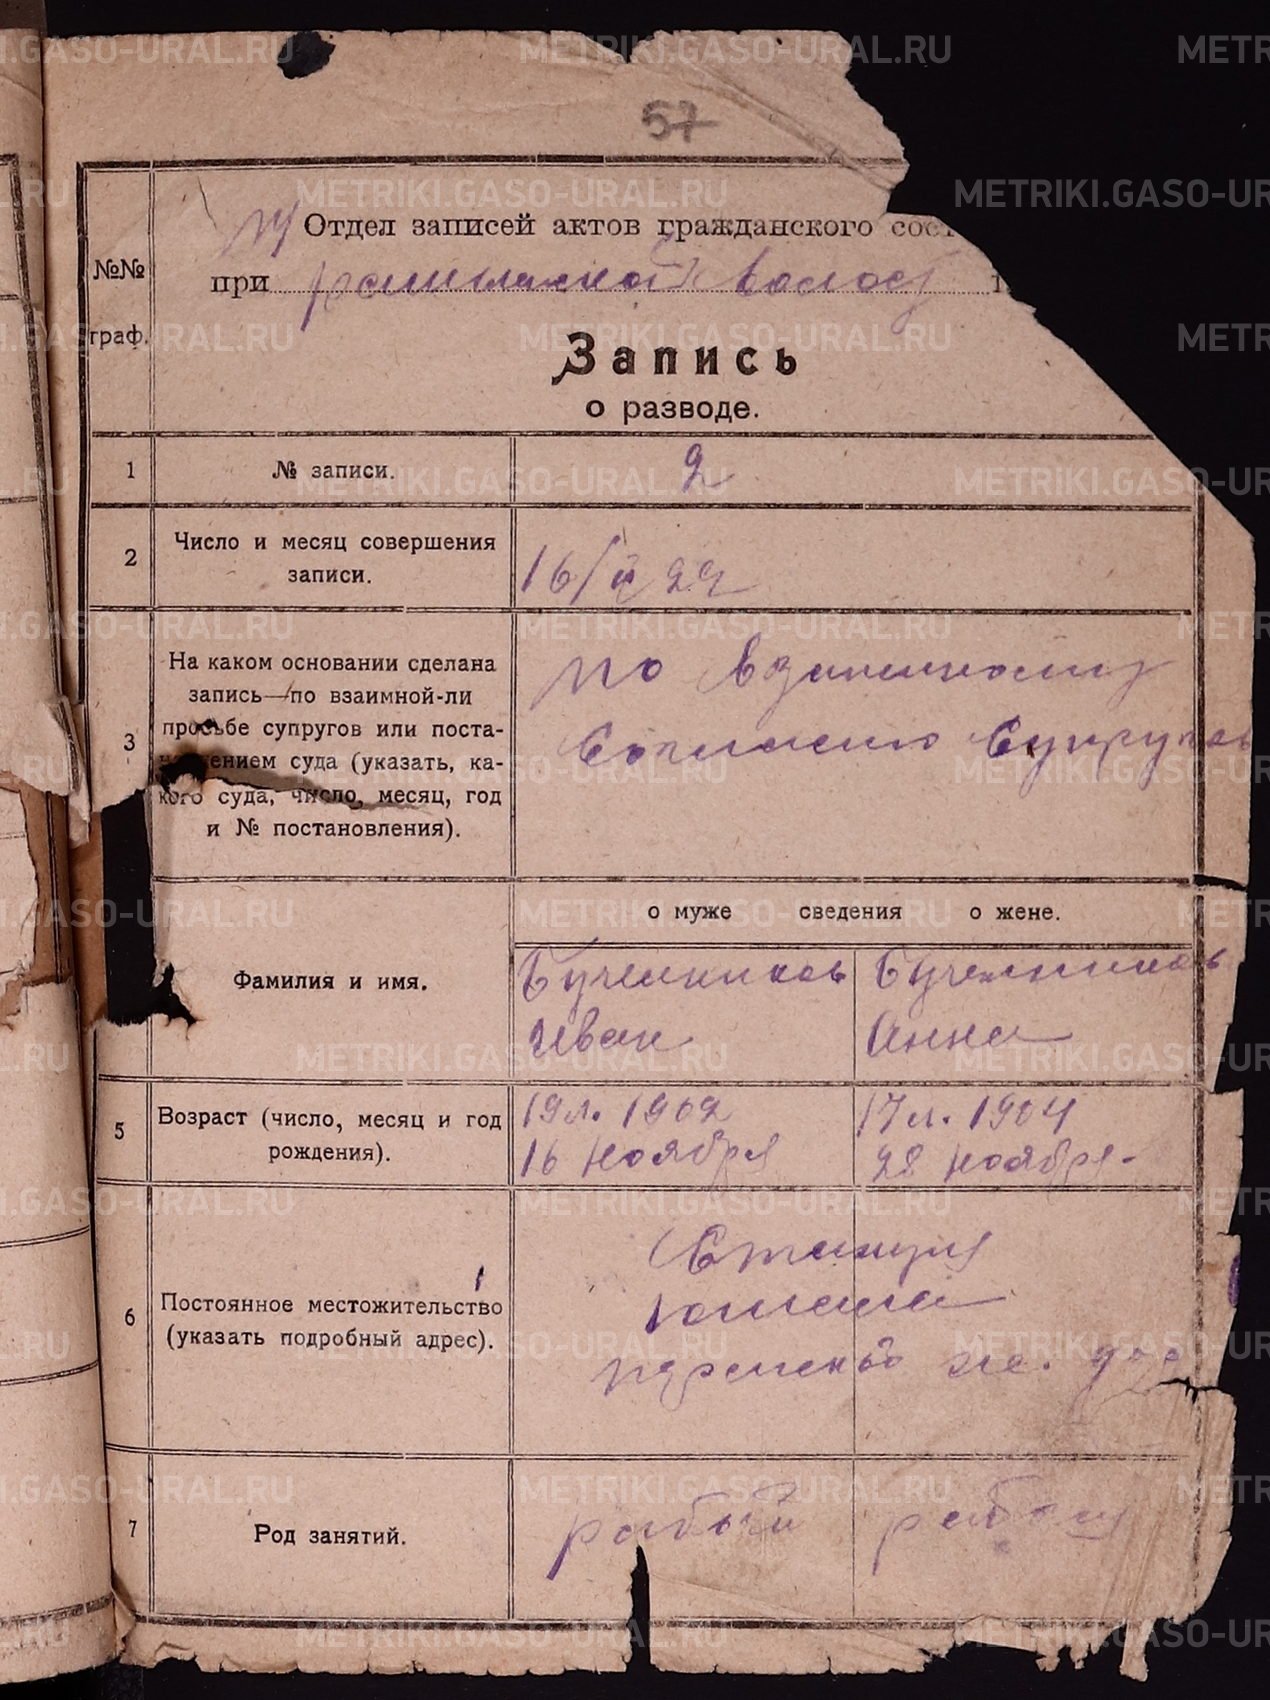 57
Отдел записей актов гражданского сост
№№
граф.
при волос
Запись
о разводе.
1 № записи. 2
2 Число и месяц совершения
записи.
16/ 22
3 На каком основании сделана
запись—по взаимной-ли
просьбе супругов или поста-
новлением суда (указать, ка-
кого суда, число, месяц, год
и № постановления).
по взаимному
согласию супругов
о муже сведения о жене.
Фамилия и имя.
Бученников Бученников
Иван Анна
5 Возраст (число, месяц и год
рождения).
19 л. 1902 17 л. 1904
16 ноября 28 ноября
6 Постоянное местожительство
(указать подробный адрес).
Станция
7 Род занятий.
METRIKI.GASO-URAL.RU